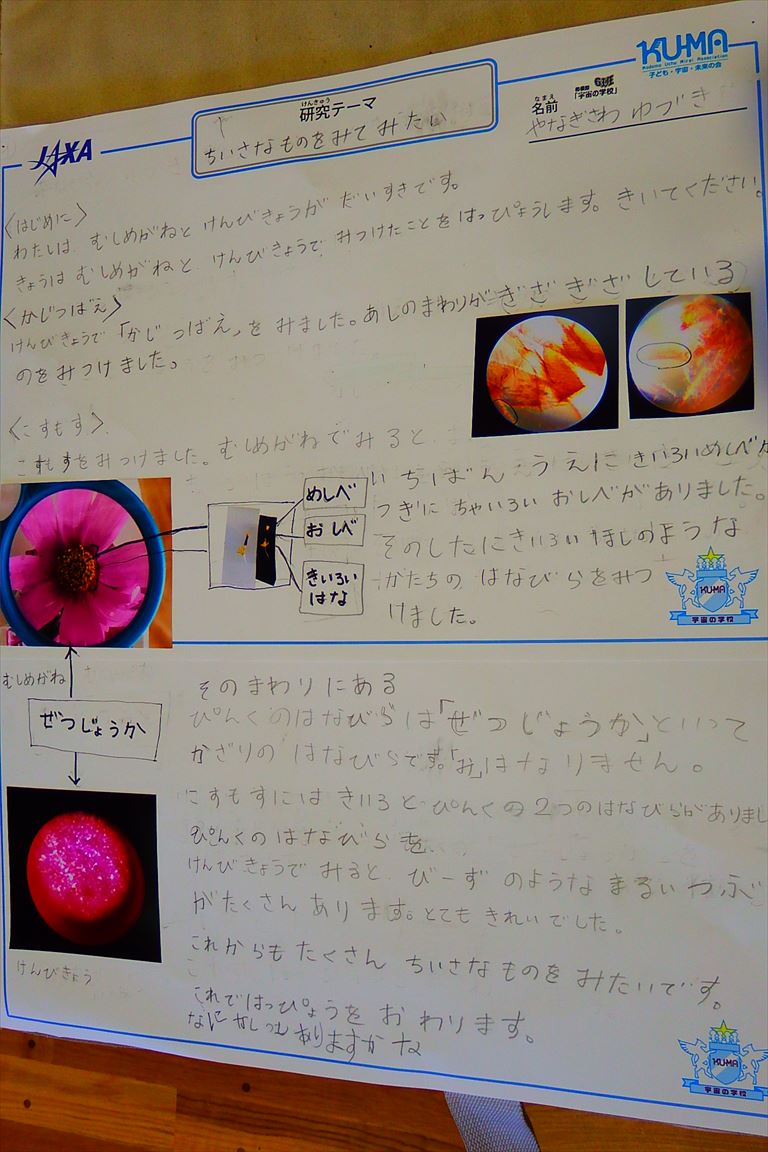 JAXA
けんきゅう
研究テーマ
ちいさなものをみてみたい
KU-MA
Kodomo Uchu Mirai Association
子ども・宇宙・未来の会
「宇宙の学校」
なまえ
名前
やなぎさわ ゆづき
〈はじめに〉
わたしは、むしめがねと けんびきょうが だいすきです。
きょうは むしめがねと、けんびきょうで、みつけたことを はっぴょうします。きいてください。
〈かじつばえ〉
けんびきょうで「かじつばえ」を みました。あしのまわりが ぎざぎざ している
のをみつけました。
〈こすもす〉
こすもすをみつけました。むしめがねでみると、
いちばん うえに きいろいめしべが
つぎに ちゃいろい おしべがありました。
そのしたにきいろい ほしのような
かたちの はなびらをみつ
けました。
めしべ
おしべ
きいろい
はな
KU-MA
宇宙の学校
むしめがね
ぜつじょうか
けんびきょう
そのまわりにある
ぴんくのはなびらは「ぜつじょうか」といって
かざりの はなびらです。「み」はなりません。
こすもすには きいろと、ぴんくの2つのはなびらがありまし
ぴんくの はなびらを
けんびきょうで みると、びーず のような まるい つぶ
がたくさん あります。とても きれいでした。
これからも たくさん ちいさなものを みたいです。
これではっぴょうを おわります。
なにか しつもん ありますか
KU-MA
宇宙の学校